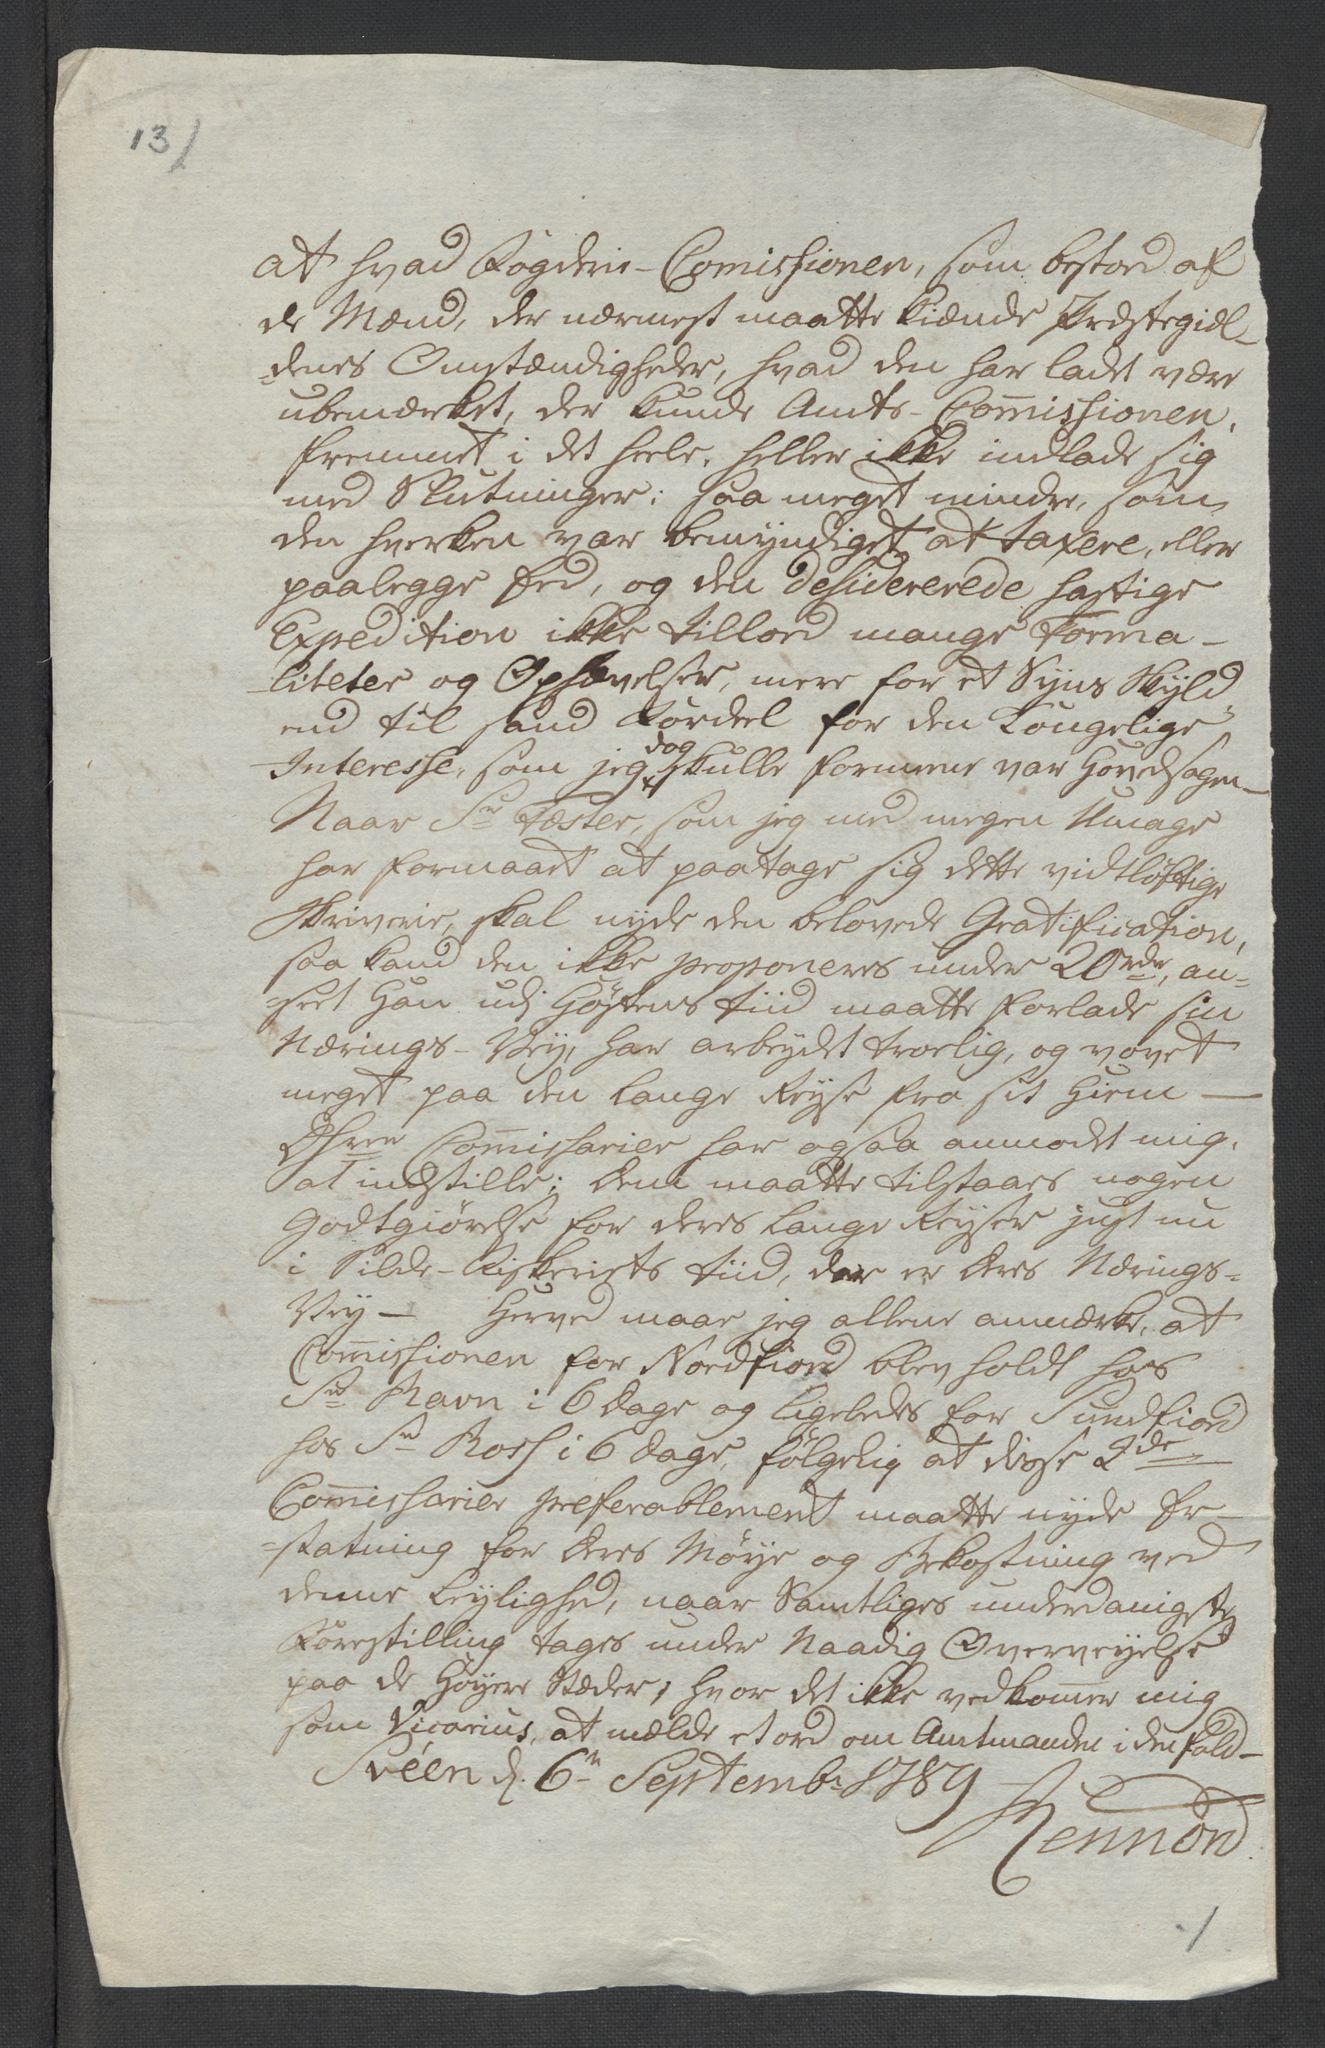 13/
at hvad Fogderie-Comissionen, som bestod af
de Mænd, der nærmest maatte kiænde Præstegiæl-
denes Omstændigheder, hvad den har ladet være
ubemærket, der kunde Amts-Com̄issionen,
fremmet i det heele, heller ikke indlade sig
med Slutninger; saa meget mindre, som
den hverken var bemyndiget at taxere, eller
paalegge Eed, og den desidererede hastige
Expedition ikke tillod mange Forma-
liteter og Ophævelser, mere for et Syns Skyld,
end til sand Fordeel for den Kongelige
Interesse, som jeg dog skulle formene var Hovedsagen_
Naar Sr Fæster, som jeg med megen Umage
har formaaet at paatage sig dette vidtløftige
Skriverie, skal nyde den belovede Gratification,
saa kand den ikke proponeres under 20 rdr, an-
seet Han udj Høstens tiid maatte forlade sin
Nærings-Vey, har arbeydet troelig, og vovet
meget paa den lange Reyse fra sit Hiem —
Com̄issarier har ogsaa anmodet mig,
at indstille; dem maatte tilstaaes nogen
Godtgiørelse for deres lange Reyser just nu
i Silde-Fiskeriets tiid, der er deres Nærings-
Vey — Herved maae jeg allene anmærke, at
Com̄issionen for Nordfiord blev holdt hos
Sr Ravn i 6 dage og ligeledes for Sundfiord
hos Sr Rosh i 6 dage, følgelig at disse 2de
Com̄issarier preferablement maatte nyde Er-
statning for deres Møye og Bekostning ved
denne Leylighed, naar Samtliges underdanigste
Forestilling tages under Naadig Overveyelse
paa de Høyere Stæder, hvor det ikke vedkom̄er mig
som Vicarius, at mælde et ord om Amtmanden i den fald_
Svéen d. 6n Septembr 1789
Hennød
/